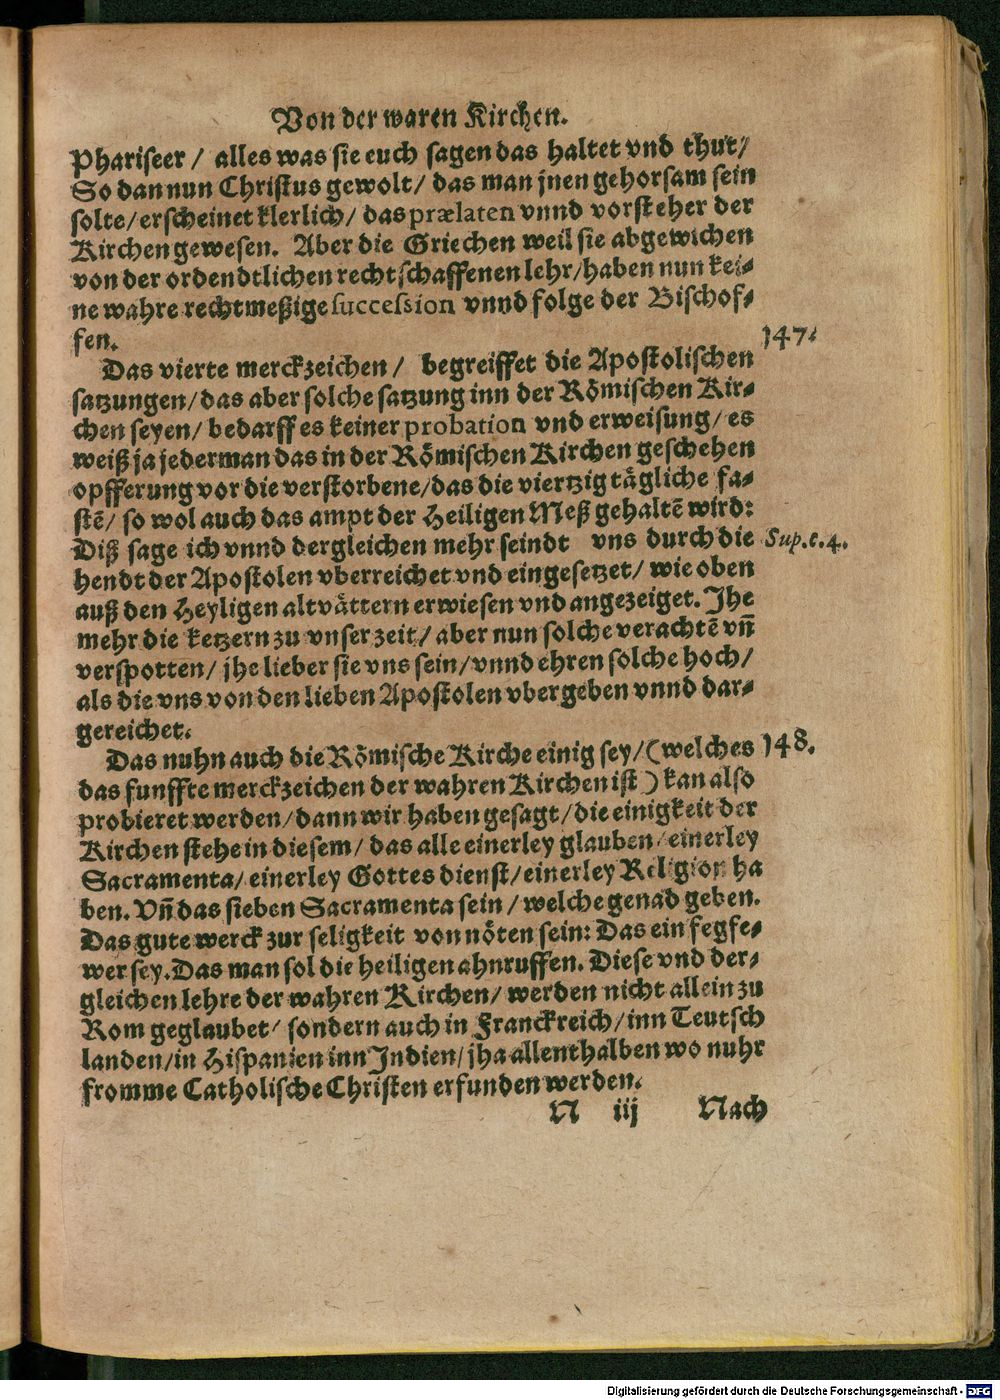 Von der waren Kirchen.
Phariseer / alles was sie euch sagen das haltet vnd thut/
So dan nun Christus gewolt/ das man jnen gehorsam sein
solte/ erscheinet klerlich/ das prælaten vnnd vorsteher der
Kirchen gewesen. Aber die Griechen weil sie abgewichen
von der ordendtlichen rechtschaffenen lehr/ haben nun kei-
ne wahre rechtmeßige succession vnnd folge der Bischof-
fen.
147.
Das vierte merckzeichen / begreiffet die Apostolischen
satzungen/ das aber solche satzung inn der Römischen Kir-
chen seyen/ bedarff es keiner probation vnd erweisung/ es
weiß ja jederman das in der Römischen Kirchen geschehen
opfferung vor die verstorbene/ das die viertzig tägliche fa-
stē/ so wol auch das ampt der Heiligen Meß gehaltē wird:
Diß sage ich vnnd dergleichen mehr seindt vns durch die Sup.c.4.
hendt der Apostolen vberreichet vnd eingesetzet/ wie oben
auß den Heyligen altvättern erwiesen vnd angezeiget. Jhe
mehr die ketzern zu vnser zeit/ aber nun solche verachtē vn̄
verspotten/ jhe lieber sie vns sein/ vnnd ehren solche hoch/
als die vns von den lieben Apostolen vbergeben vnnd dar-
gereichet.
Das nuhn auch die Römische Kirche einig sey/ (welches 148.
das funffte merckzeichen der wahren Kirchen ist) kan also
probieret werden/ dann wir haben gesagt/ die einigkeit der
Kirchen stehe in diesem/ das alle einerley glauben/ einerley
Sacramenta/ einerley Gottes dienst/ einerley Religion ha
ben. Vn̄ das sieben Sacramenta sein / welche genad geben.
Das gute werck zur seligkeit von nöten sein: Das ein fegfe-
wer sey. Das man sol die heiligen ahnruffen. Diese vnd der-
gleichen lehre der wahren Kirchen/ werden nicht allein zu
Rom geglaubet/ sondern auch in Franckreich/ inn Teutsch
landen/ in Hispanien inn Jndien/ jha allenthalben wo nuhr
fromme Catholische Christen erfunden werden.
N iij Nach
Digitalisierung gefördert durch die Deutsche Forschungsgemeinschaft - DFG